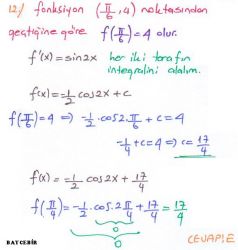 12-) fonksiyon (π/6, 4) noktasından
geçtiğine göre f(π/6)=4 olur.
f'(x)=sin2x her iki tarafın
integralini alalım.
f(x)=-1/2 cos2x+c
f(π/6)=4 ⇒ -1/2·cos2·π/6+c=4
-1/4+c=4 ⇒ c=17/4
f(x)=-1/2 cos2x+17/4
f(π/4)=-1/2·cos·2π/4+17/4=17/4
0
0
CEVAP E
BAYCEBİR